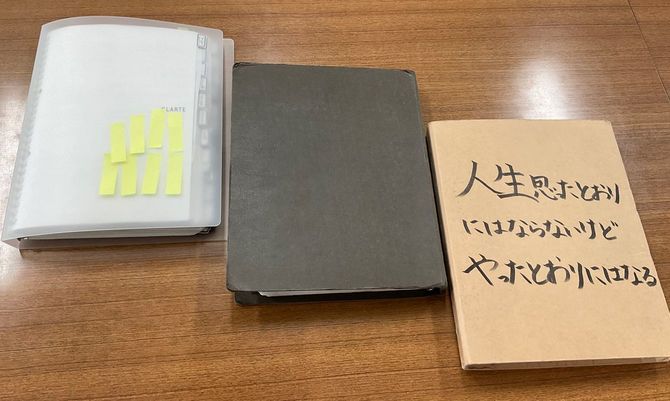 CLARTE
人生思ったとおり
にはならないけど
やったとおりにはなる